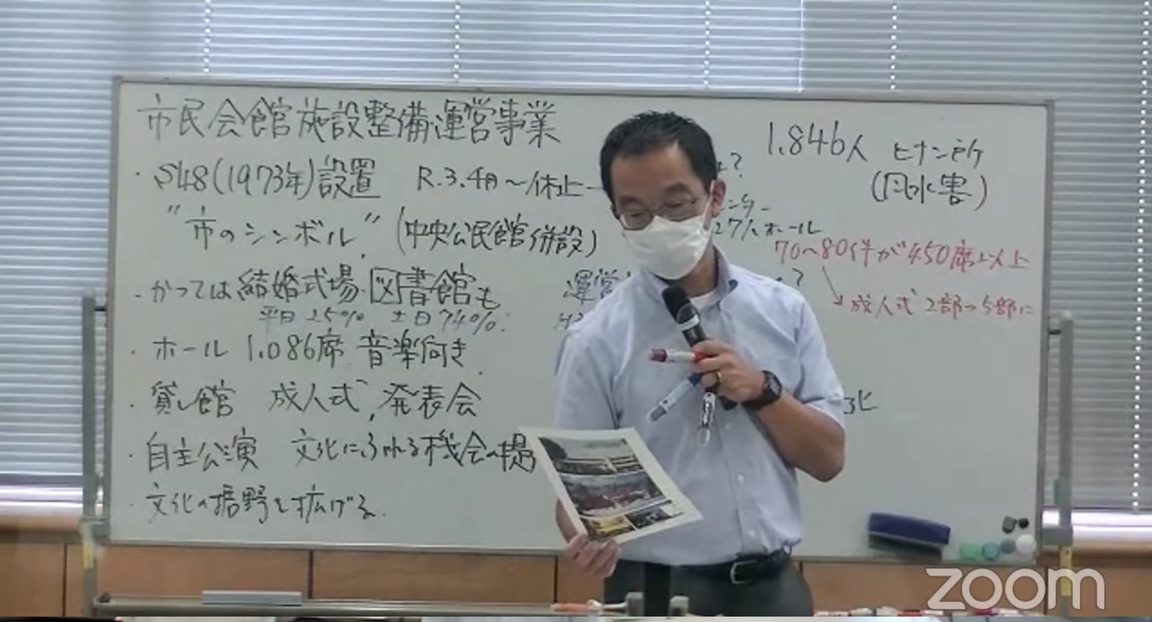 市民会館施設整備運営事業
・S48(1973年)設置 R.3.4月〜休止
"市のシンボル" (中央公民館併設)
・かつては結婚式場.図書館も
平日25% 土日74%.
・ホール 1.086席. 音楽向き
・貸し館 成人式,発表会
・自主公演 文化にふれる機会の提
・文化の裾野を拡げる.
?
ンター
27人ホール
運営
?
化
1.846人 ヒナン所
(風水害)
70〜80件が450席以上
成人式 2部→5部に
zoom